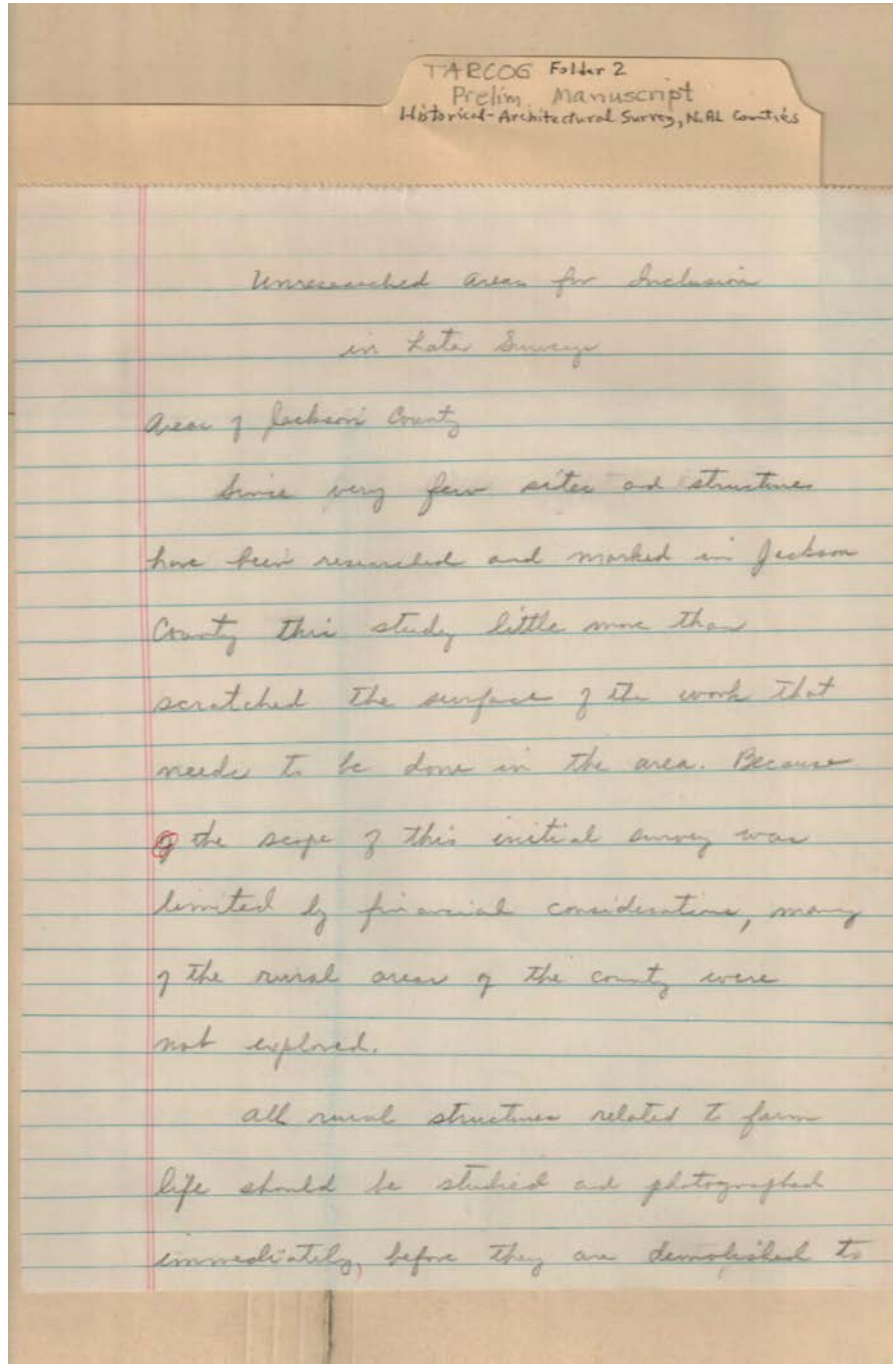 TARCOG Folder 2
Prelim. Manuscript
Historical-Architectural Survey, N. AL Counties
Unresearched Areas for Inclusion
in Later Surveys
Areas of Jackson County
Since very few sites and structures
have been researched and marked in Jackson
County this study little more than
scratched the surface of the work that
needs to be done in the area. Because
of the scope of this initial survey was
limited by financial considerations, many
of the rural areas of the county were
not explored.
All rural structures related to farm
life should be studied and photographed
immediately, before they are demolished to